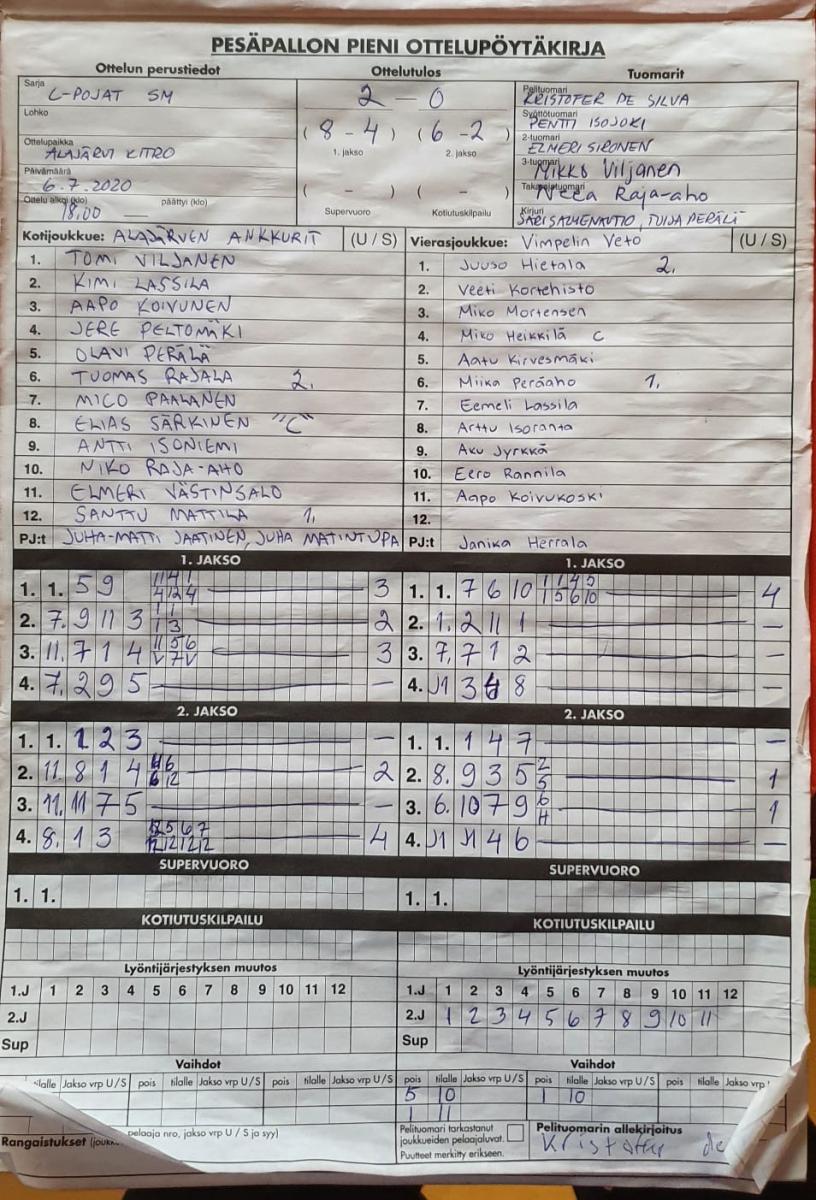 PESÄPALLON PIENI OTTELUPÖYTÄKIRJA
Ottelun perustiedot
Sarja
C-POJAT SM
Lohko
Ottelupaikka
ALAJÄRVI KITRO
Päivämäärä
6.7.2020
Ottelu alkoi (klo) päättyi (klo)
18.00 —
Ottelutulos
2 – 0
(8 - 4) (6 - 2)
1. jakso 2. jakso
( - ) ( - )
Supervuoro Kotiutuskilpailu
Tuomarit
Pelituomari
KRISTOFER DE SILVA
Syöttötuomari
PENTTI ISOJOKI
2-tuomari
ELMERI SIRONEN
3-tuomari
Mikko Viljanen
Takarajatuomari
Neea Raja-aho
Kirjuri
SARI SALMENAUTIO, TUIJA PERÄLÄ
Kotijoukkue: ALAJÄRVEN ANKKURIT (U / S)
1. TOMI VILJANEN
2. KIMI LASSILA
3. AAPO KOIVUNEN
4. JERE PELTOMÄKI
5. OLAVI PERÄLÄ
6. TUOMAS RAJALA 2.
7. MICO PAALANEN
8. ELIAS SÄRKINEN "C"
9. ANTTI ISONIEMI
10. NIKO RAJA-AHO
11. ELMERI VÄSTINSALO
12. SANTTU MATTILA 1.
PJ:t JUHA-MATTI JAATINEN, JUHA MATINTUPA
Vierasjoukkue: Vimpelin Veto (U / S)
1. Juuso Hietala 2.
2. Veeti Kortehisto
3. Miko Mortensen
4. Miko Heikkilä C
5. Aatu Kirvesmäki
6. Miika Peräaho 1.
7. Eemeli Lassila
8. Arttu Isoranta
9. Aku Jyrkkä
10. Eero Rannila
11. Aapo Koivukoski
12.
PJ:t Janika Herrala
1. JAKSO
1. 1. 5 9 11 4 1 3
4 12 4
2. 7. 9 11 3 1 1 2
1 3
3. 11. 7 1 4 11 5 6 3
V 7 V
4. 7. 2 9 5 —
1. JAKSO
1. 1. 7 6 10 1 1 4 5 4
1 5 6 10
2. 1. 2 11 1 —
3. 7. 7 1 2 —
4. J1 3 4 8 —
2. JAKSO
1. 1. 1 2 3 —
2. 11. 8 1 4 4 6 2
6 12
3. 11. 11 7 5 —
4. 8. 1 3 12 5 6 7 4
12 12 12 12
2. JAKSO
1. 1. 1 4 7 —
2. 8. 9 3 5 2 1
5
3. 6. 10 7 9 6 1
H
4. J1 J1 4 6 —
SUPERVUORO
1. 1.
SUPERVUORO
1. 1.
KOTIUTUSKILPAILU
KOTIUTUSKILPAILU
Lyöntijärjestyksen muutos
1.J 1 2 3 4 5 6 7 8 9 10 11 12
2.J
Sup
Lyöntijärjestyksen muutos
1.J 1 2 3 4 5 6 7 8 9 10 11 12
2.J 1 2 3 4 5 6 7 8 9 10 11
Sup
Vaihdot
tilalle Jakso vrp U/S pois tilalle Jakso vrp U/S pois tilalle Jakso vrp U/S
Vaihdot
pois tilalle Jakso vrp U/S pois tilalle Jakso vrp U/S pois tilalle Jakso vrp
5 10 1 10
1 11
Rangaistukset pelaaja nro, jakso vrp U / S ja syy)
Pelituomari tarkastanut
joukkueiden pelaajaluvat.
Puutteet merkitty erikseen.
Pelituomarin allekirjoitus
Kristofer de